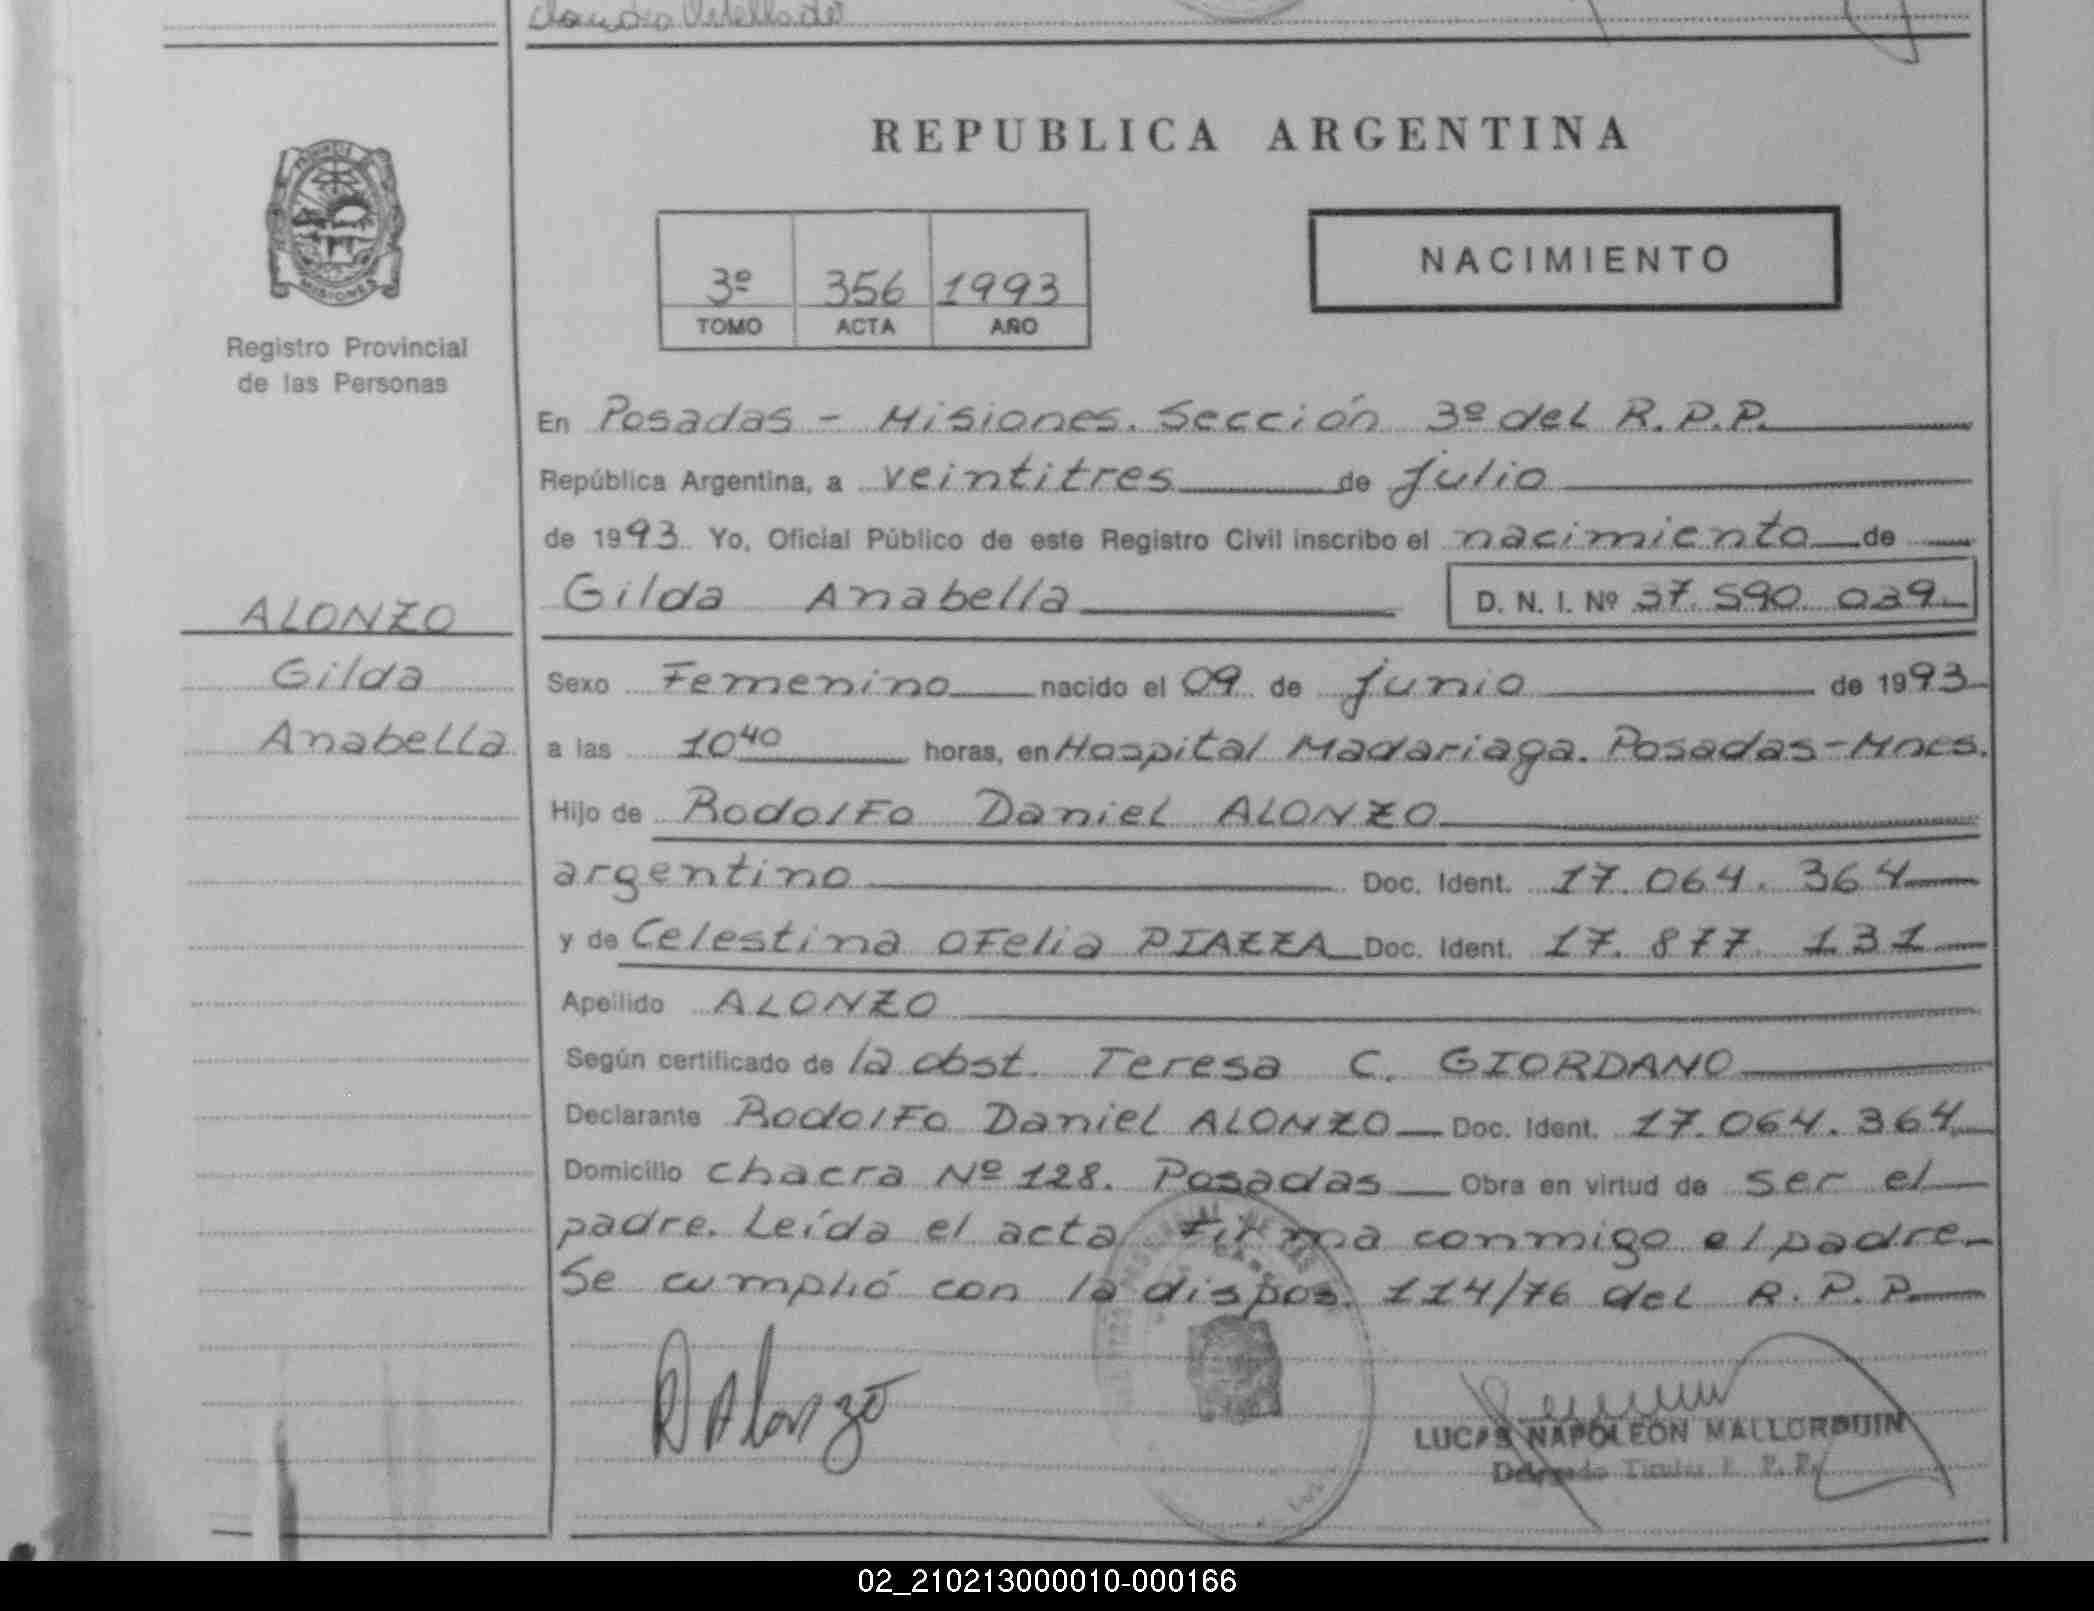 REPUBLICA ARGENTINA
PROVINCIA DE MISIONES
Registro Provincial
de las Personas
3º 356 1993
TOMO ACTA AÑO
NACIMIENTO
En Posadas - Misiones. Sección 3º del R.P.P.
República Argentina, a veintitres de julio
de 1993 Yo, Oficial Público de este Registro Civil inscribo el nacimiento de
Gilda Anabella D. N. I. Nº 37.590.039
ALONZO
Gilda
Anabella
Sexo Femenino nacido el 09 de junio de 1993
a las 10 40 horas, en Hospital Madariaga. Posadas-Mnes.
Hijo de Rodolfo Daniel ALONZO
argentino Doc. Ident. 17.064.364
y de Celestina Ofelia PIAZZA Doc. Ident. 17.877.131
Apellido ALONZO
Según certificado de la obst. Teresa C. GIORDANO
Declarante Rodolfo Daniel ALONZO Doc. Ident. 17.064.364
Domicilio chacra Nº 128. Posadas Obra en virtud de ser el
padre. Leída el acta firma conmigo el padre
Se cumplió con la dispos. 114/76 del R.P.P.
R Alonzo
LUCAS NAPOLEON MALLORQUIN
Delegado Titular R. P. P.
02_210213000010-000166